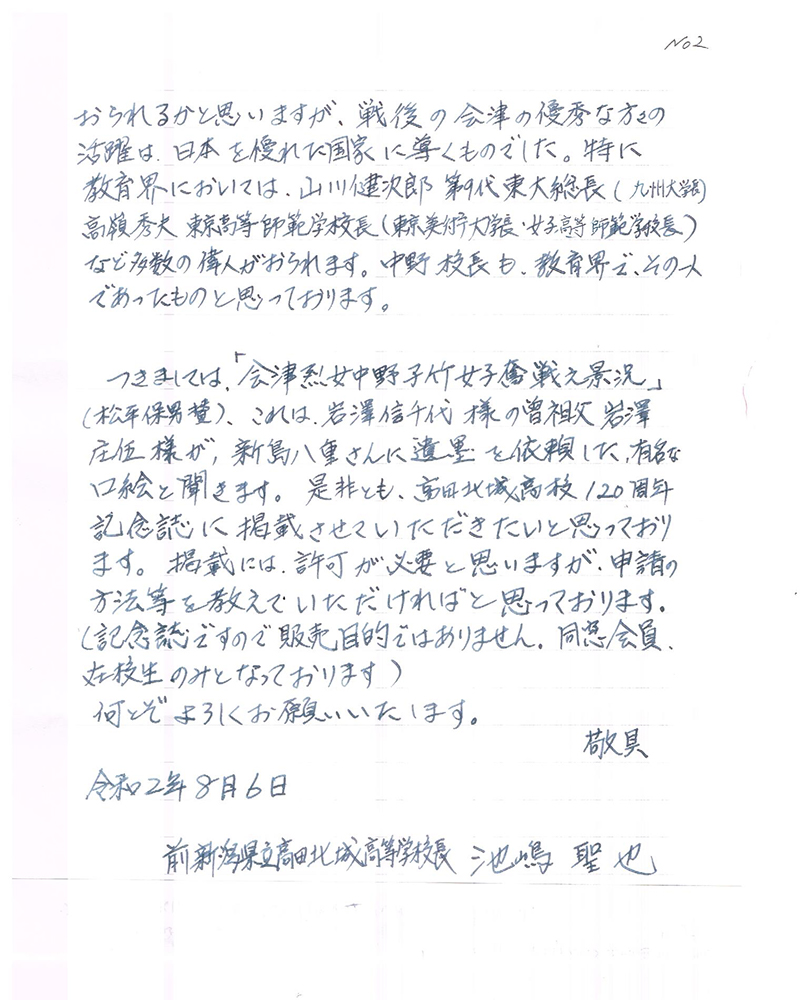 No2
おられるかと思いますが、戦後の会津の優秀な方々の
活躍は、日本を優れた国家に導くものでした。特に
教育界においては、山川健次郎 第9代東大総長(九州大学長)
高嶺秀夫 東京高等師範学校長(東京美術大学長・女子高等師範学校長)
など多数の偉人がおられます。中野校長も、教育界で、その一人
であったものと思っております。
つきましては、「会津烈女中野子竹女子奮戦之景況」
(松平保男賛)、これは、岩澤信千代様の曽祖父 岩澤
庄伍様が、新島八重さんに遺墨を依頼した、有名な
口絵と聞きます。是非とも、高田北城高校120周年
記念誌に掲載させていただきたいと思っており
ます。掲載には、許可が必要と思いますが、申請の
方法等を教えていただければと思っております。
(記念誌ですので販売目的ではありません。同窓会員、
在校生のみとなっております)
何とぞよろしくお願いいたします。
敬具
令和2年8月6日
前新潟県立高田北城高等学校長 池嶋 聖也